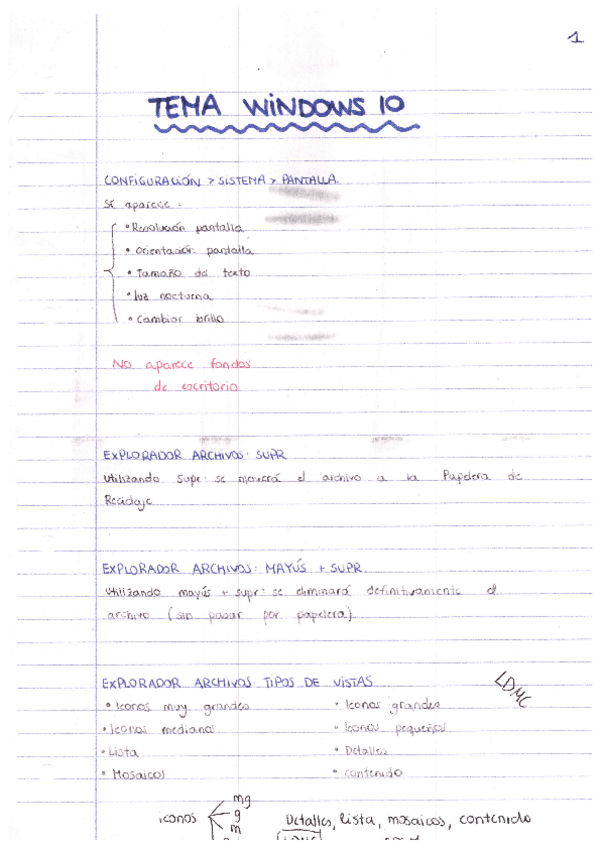 1
TEMA WINDOWS 10
CONFIGURACIÓN > SISTEMA > PANTALLA.
Sí aparece:
• Resolución pantalla
• Orientación pantalla
• Tamaño del texto
• Luz nocturna
• Cambiar brillo
No aparece fondos
de escritorio
EXPLORADOR ARCHIVOS: SUPR
Utilizando Supr: se moverá el archivo a la Papelera de
Reciclaje
EXPLORADOR ARCHIVOS: MAYÚS + SUPR.
Utilizando mayús + supr: se eliminará definitivamente el
archivo (sin pasar por papelera)
EXPLORADOR ARCHIVOS: TIPOS DE VISTAS
LDMC
• Iconos muy grandes • Iconos grandes
• Iconos medianos • Iconos pequeños
• Lista • Detalles
• Mosaicos • Contenido
mg
iconos g Detalles, lista, mosaicos, contenido
m